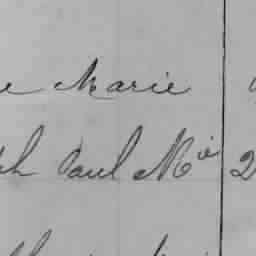 e Marie
ph Paul Mie 2